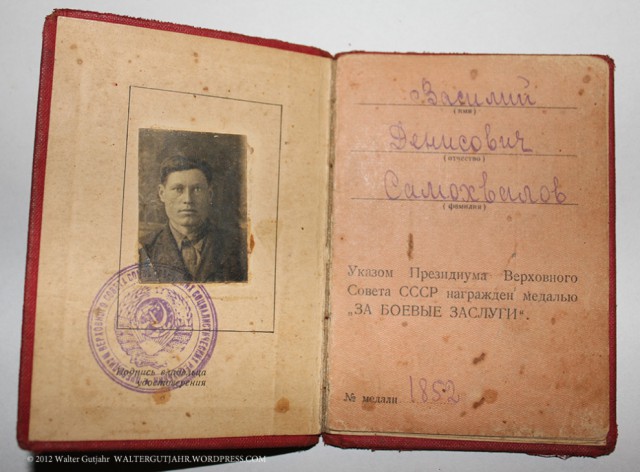 Подпись владельца
удостоверения
Василий
(имя)
Денисович
(отчество)
Самохвалов
(фамилия)
Указом Президиума Верховного
Совета СССР награжден медалью
„ЗА БОЕВЫЕ ЗАСЛУГИ".
№ медали 1852
© 2012 Walter Gutjahr WALTERGUTJAHR.WORDPRESS.COM